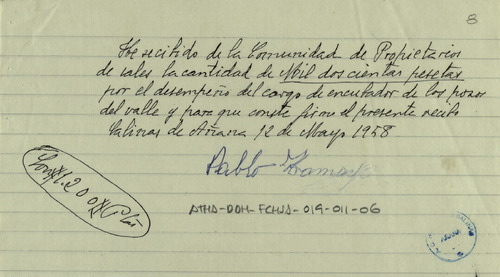 8
He recibido de la Comunidad de Propietarios
de sales la cantidad de Mil doscientas pesetas
por el desempeño del cargo de encubador de los pozos
del valle y para que conste firmo el presente recibo
Salinas de Añana 12 de Mayo 1958
Pablo
Son 1.200 Pts
ATHA-DOH-FCHVA-019-011-06